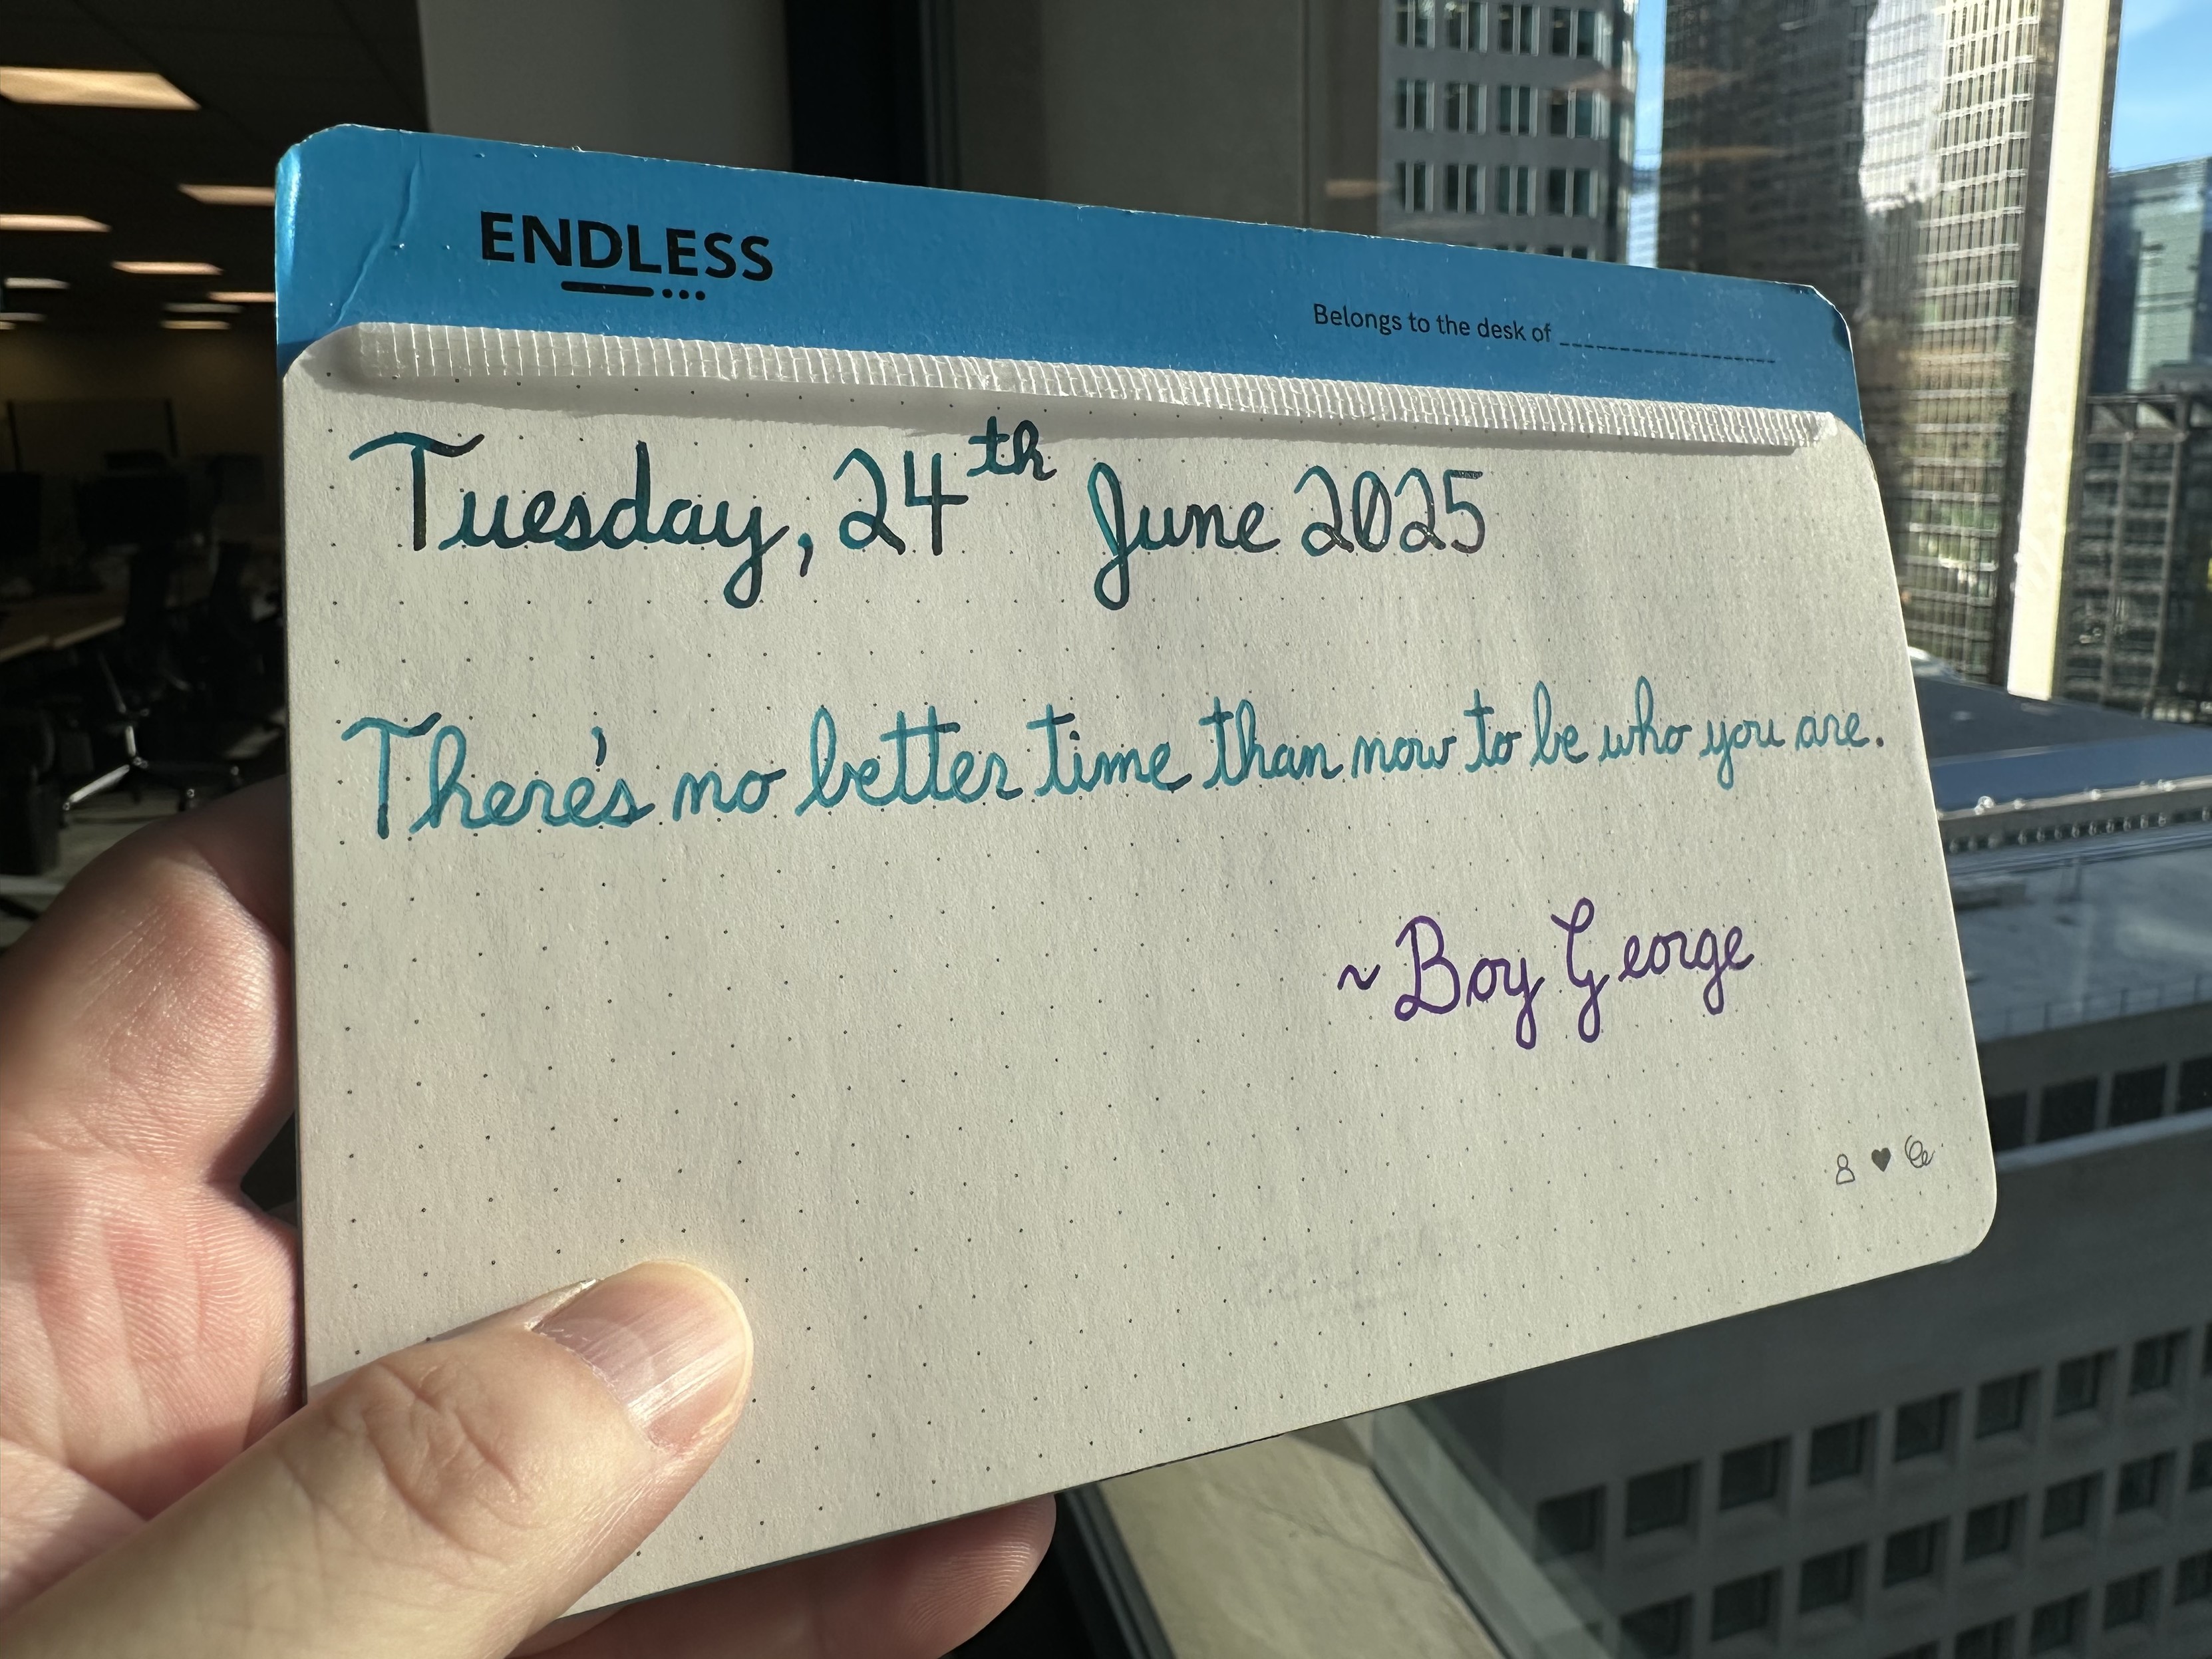 ENDLESS
Belongs to the desk of
Tuesday, 24th June 2025
There's no better time than now to be who you are.
~Boy George